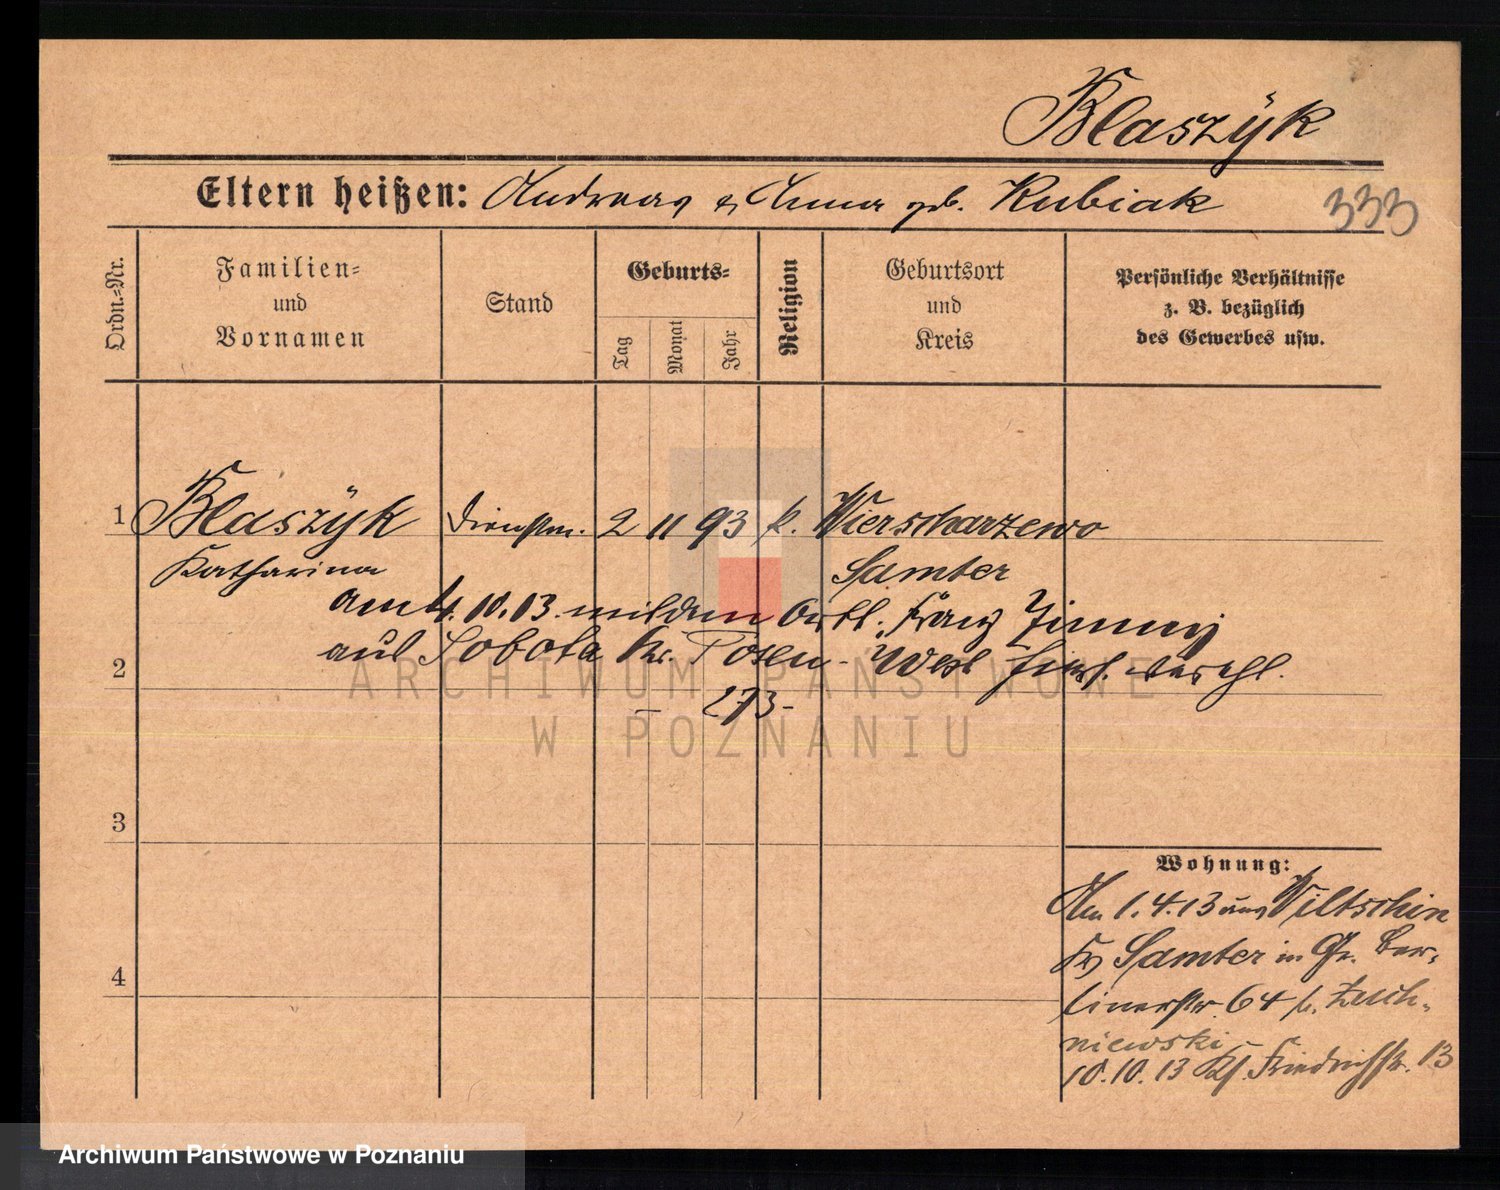 Blaszÿk
Eltern heißen: Andreas & Anna geb. Kubiak
333
Ordn.-Nr.
Familien-
und
Vornamen
Stand
Geburts-
Tag
Monat
Jahr
Religion
Geburtsort
und
Kreis
Persönliche Verhältnisse
z. B. bezüglich
des Gewerbes usw.
1 Blaszÿk Dienstm. 2 11 93 k. Wierscharzewo
Katharina Samter
am 4.10.13 mit dem Franz
aus Sobota Kr. Posen -
2
- 273 -
3
Wohnung:
Am 1.4.13 aus Wiltschin
Kr Samter in Gr. Ber-
4
linerstr. 64 b. Zuch-
niewski
10.10.13 Friedrichstr. 13
ARCHIWUM PAŃSTWOWE
W POZNANIU
Archiwum Państwowe w Poznaniu